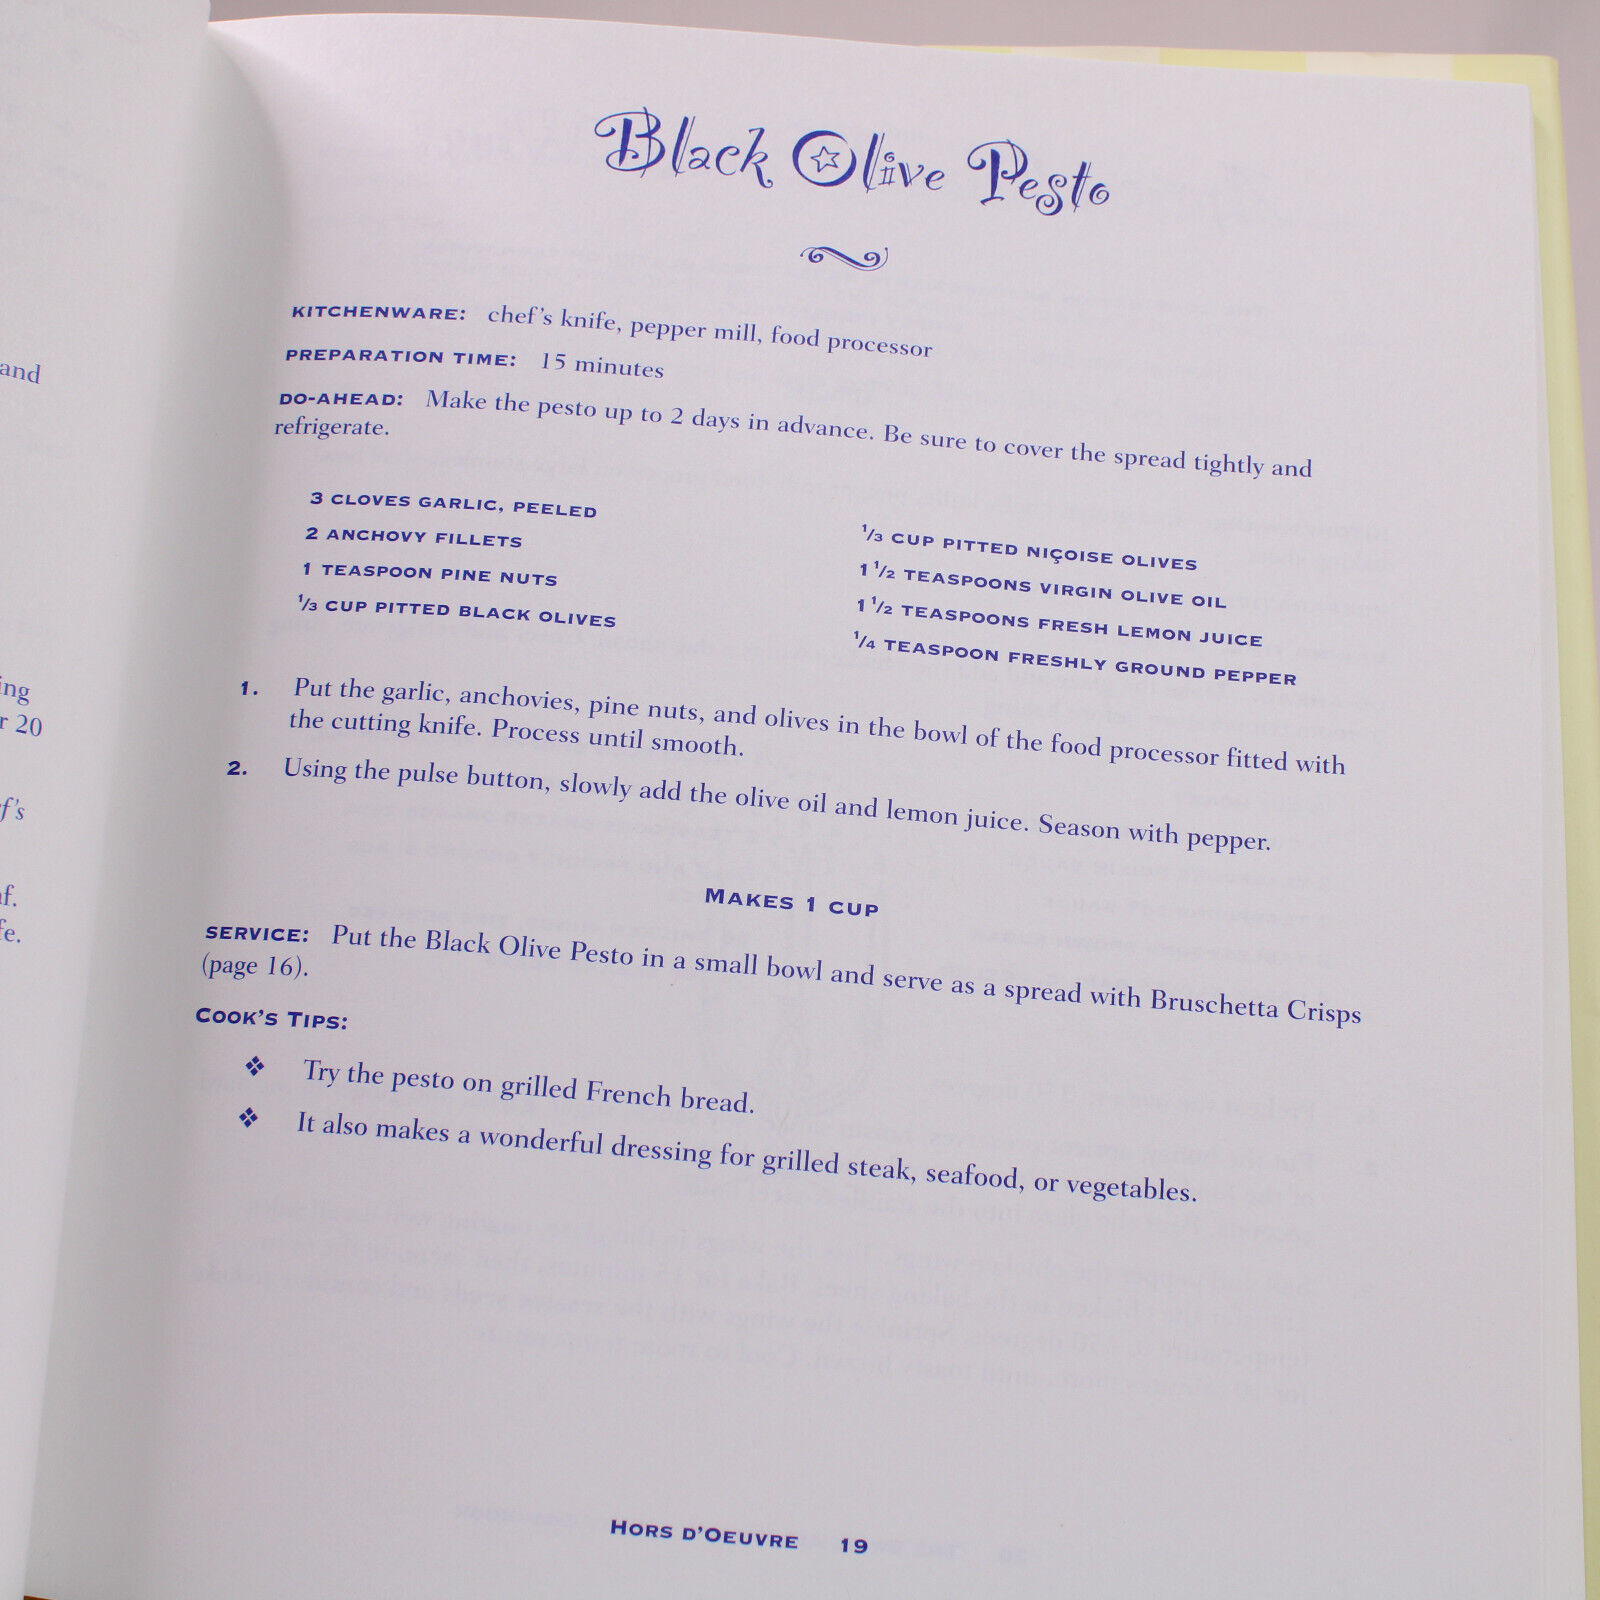 and
ing
r 20
f's
f.
fe.
Black Olive Pesto
KITCHENWARE: chef's knife, pepper mill, food processor
PREPARATION TIME: 15 minutes
DO-AHEAD: Make the pesto up to 2 days in advance. Be sure to cover the spread tightly and
refrigerate.
3 CLOVES GARLIC, PEELED
2 ANCHOVY FILLETS
1 TEASPOON PINE NUTS
1/3 CUP PITTED BLACK OLIVES
1/3 CUP PITTED NIÇOISE OLIVES
1 1/2 TEASPOONS VIRGIN OLIVE OIL
1 1/2 TEASPOONS FRESH LEMON JUICE
1/4 TEASPOON FRESHLY GROUND PEPPER
1. Put the garlic, anchovies, pine nuts, and olives in the bowl of the food processor fitted with
the cutting knife. Process until smooth.
2. Using the pulse button, slowly add the olive oil and lemon juice. Season with pepper.
MAKES 1 CUP
SERVICE: Put the Black Olive Pesto in a small bowl and serve as a spread with Bruschetta Crisps
(page 16).
COOK'S TIPS:
❖ Try the pesto on grilled French bread.
❖ It also makes a wonderful dressing for grilled steak, seafood, or vegetables.
HORS D'OEUVRE 19